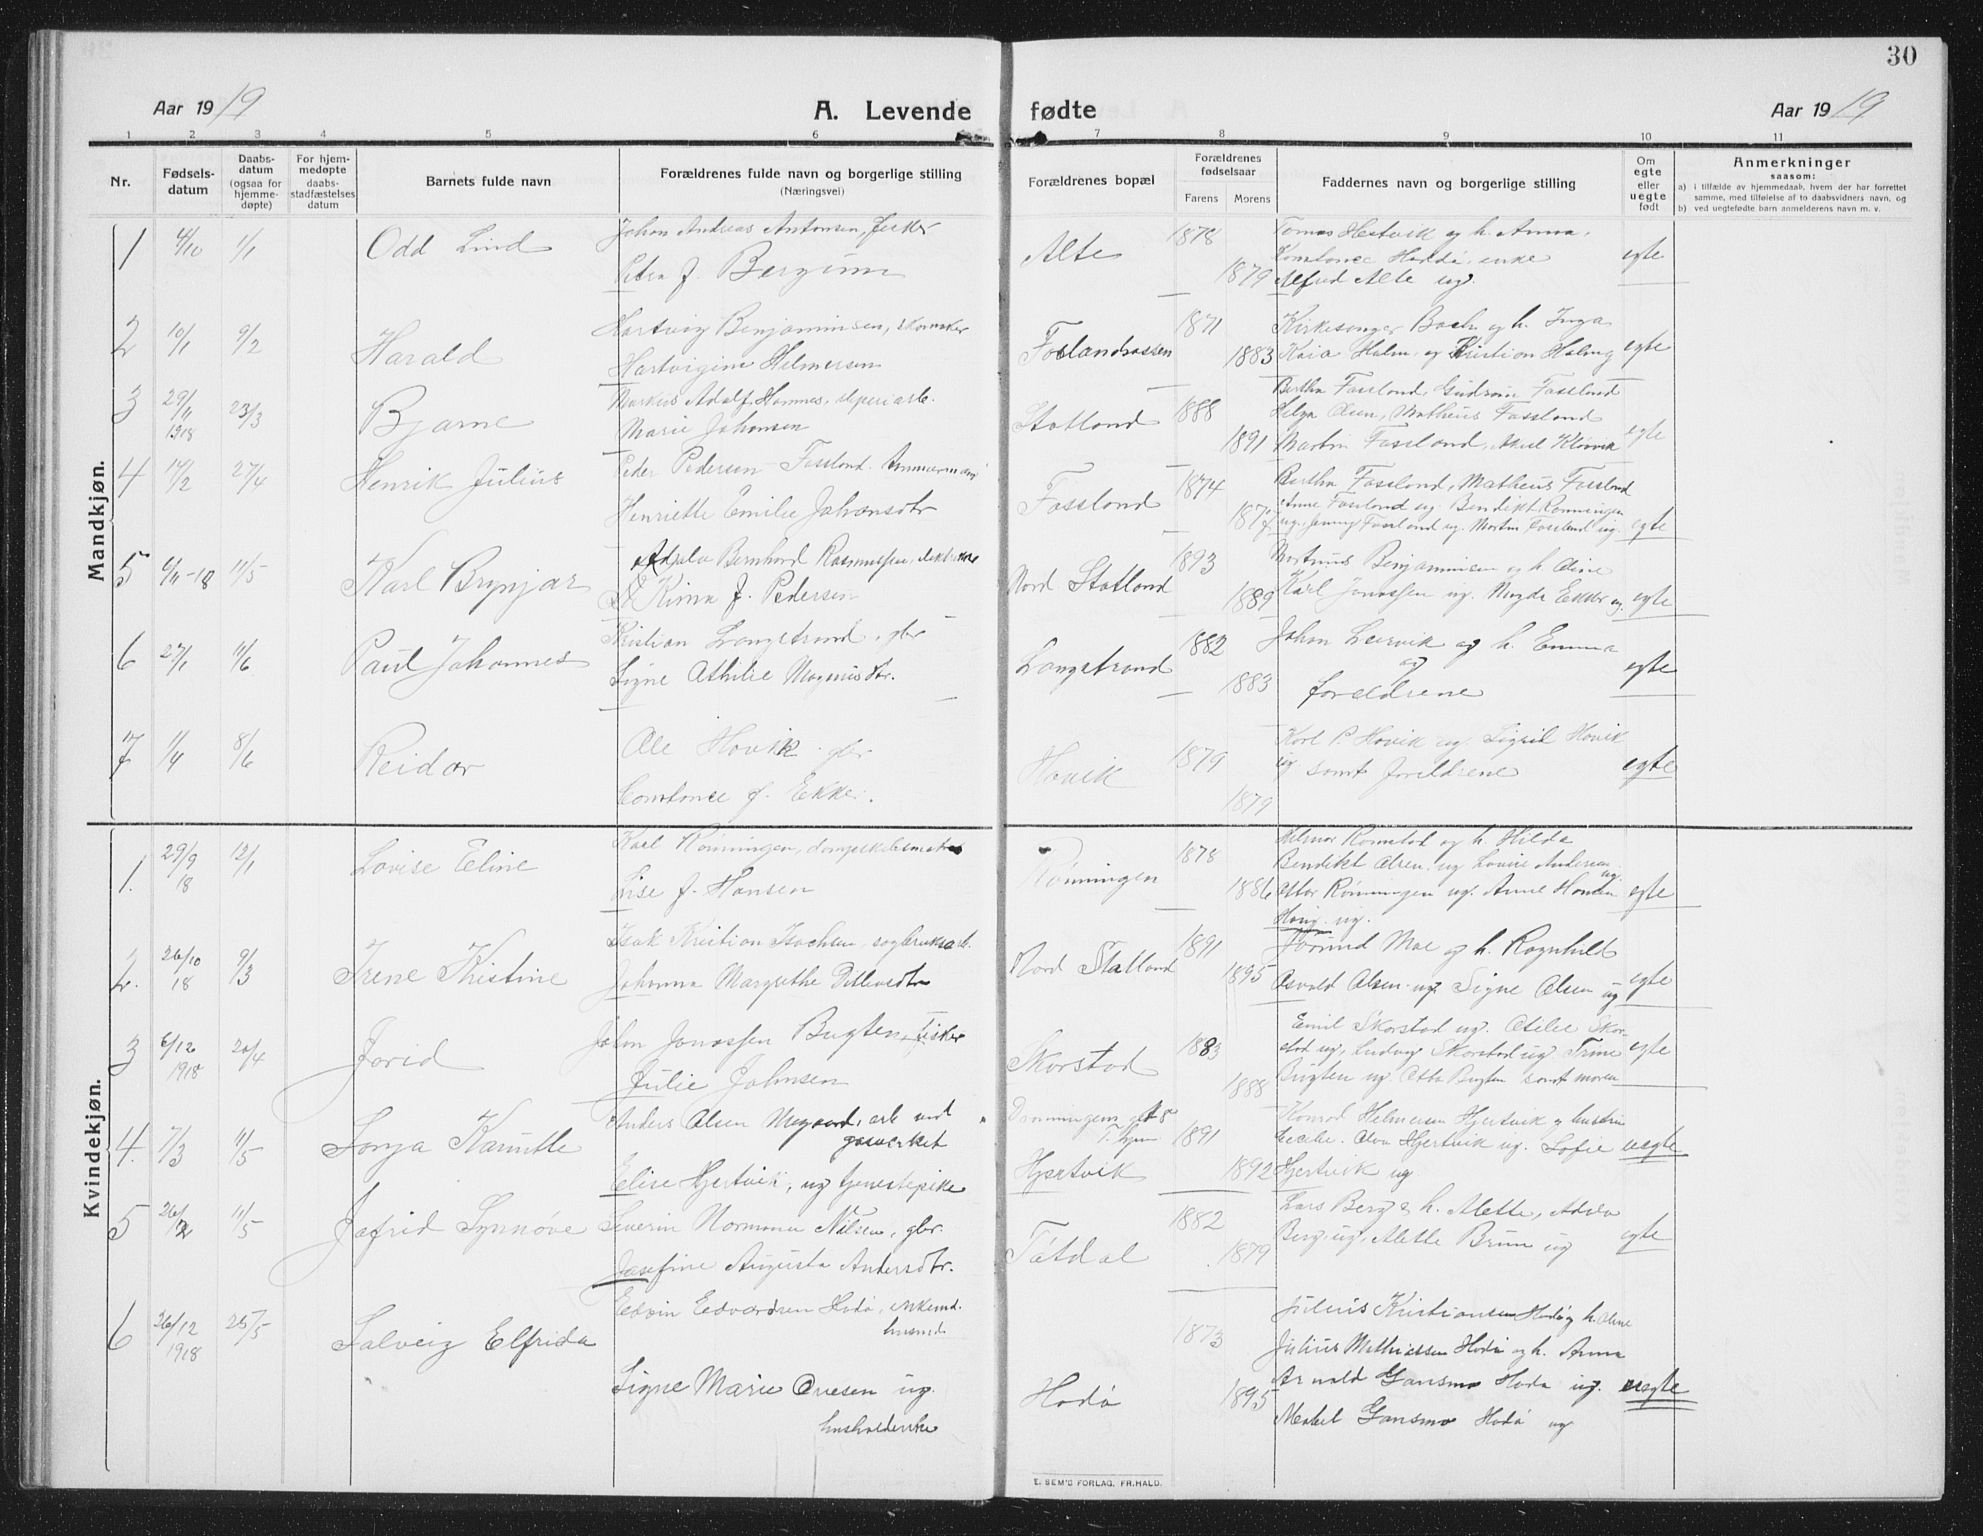 30
Aar 1919
A. Levende fødte
Aar 1919
1 2 3 4 5 6 7 8 9 10 11
Nr.
Fødsels-
datum
Daabs-
datum
(ogsaa for
hjemme-
døpte)
For hjem-
medøpte
daabs-
stadfæstelses
datum
Barnets fulde navn
Forældrenes fulde navn og borgerlige stilling
(Næringsvei)
Forældrenes bopæl
Forældrenes
fødselsaar
Farens
Morens
Faddernes navn og borgerlige stilling
Om
egte
eller
uegte
født
Anmerkninger
saasom:
a) i tilfælde av hjemmedaab, hvem der har forrettet
samme, med tilføielse af to daabsvidners navn, og
b) ved uegtefødte barn anmelderens navn m. v.
Mandkjøn.
1 4/10 1/1 Odd Lind
Johan Andreas Antonsen, fisker
Petra f. Bergum
Alte 1878 1879
Tomas Hestvik og h. Anna,
Konstance Hodø, enke
Alfred Alte ug.
egte
2 10/1 9/2 Harald
Hartvig Benjaminsen, skomaker
Hartvigine Helmersen
1871 1883
Kirkesanger Bach og h. Inga
Kaia Holm og Kristian Holm ug
egte
3 29/11 1918 23/3 Bjarne
Markus Adolf Hamnes, sliperiarb.
Marie Johansen
Statland 1888 1891
Bertha Fossland, Gudrun Fossland
Helga Olsen, Matheus Fossland
Martin Fossland, Aksel
egte
4 14/2 27/4 Henrik Julius
Peder Pedersen Fossland.
Henriette Emilie Johansdtr
Fossland 1874
Bertha Fossland, Matheus Fossland
Anne Fossland ug. Benedikt Rønningen
ug. Jenny Fossland ug. Martin Fossland ug.
egte
5 6/11-18 11/5 Karl Brynjar
Bernhard Rasmussen,
Kima f. Pedersen
Nord Statland 1893 1889
Martinus Benjaminsen og h. Oline
Karl Jonassen ug. Magda Ekker ug.
egte
6 27/1 11/6 Paul Johannes
Kristian Langstrand, gbr
Signe Othilie Magnusdtr.
Langstrand 1882 1883
Johan Leirvik og h. Emma
og
foreldrene
egte
7 1/4 8/6 Reidar
Ole Hovik gbr
Constance f. Ekker.
Hovik 1879 1879
Karl P. Hovik ug. Sigrid Hovik
ug samt foreldrene
egte
Kvindekjøn.
1. 29/9 18 12/1 Lovise Eline
Karl Rønningen, dampskibsmatros
Lise f. Hansen
Rønningen 1878 1886
Helmer Romstad og h. Hilda
Bendikt Olsen ug Lovise Andersen ug.
Ottar Rønningen ug. Anne
ug.
egte
2. 26/10 18 9/3 Irene Kristine
Isak Kristian Isachsen, sagbruksarb.
Johanna Margrethe Ditlevsdtr
Nord Statland 1891 1895
Moe og h. Ragnhild
Osvald Olsen ug. Signe Olsen ug
egte
3 6/12 1918 20/4 Jorid
Johan Jonassen Bugten, fisker
Julie Johnsen
Skorstad 1883 1888
Emil Skorstad ug. Otilie Skor-
stad ug, Ludvig Skorstad ug Trine
Bugten ug. Otto Bugten samt moren
egte
4. 7/3 11/5 Sonja Kamille
Anders Olsen Megaard, arb ved
gasverket
Elise Hjertvik, ug tjenestepike
Dronningens gt 5
T.hjem
Hjertvik 1891 1892
Konrad Helmersen Hjertvik og hustru
Olva Hjertvik ug. Sofie
Hjertvik ug
uegte
5 26/2 11/5 Jofrid Synnøve
Severin Normann Nilsen, gbr.
Josefine Augusta Andersdtr.
Tøtdal 1882 1879
Lars Berg & h. Alette, Advla
Berg ug, Alette Bruun ug
egte
6 26/12 1918 25/5 Solveig Elfrida
Edvin Edvardsen Hodø, enkemd.
husmd
Signe Marie Ovesen ug.
husholderske
Hodø 1873 1895
Julius Kristiansen Hodø og h. Oline
Julius Mathiassen Hodø og h. Anna
Arnold Gansmo Hodø ug.
Gansmo Hodø ug
uegte
E. SEM'S FORLAG, FR.HALD.